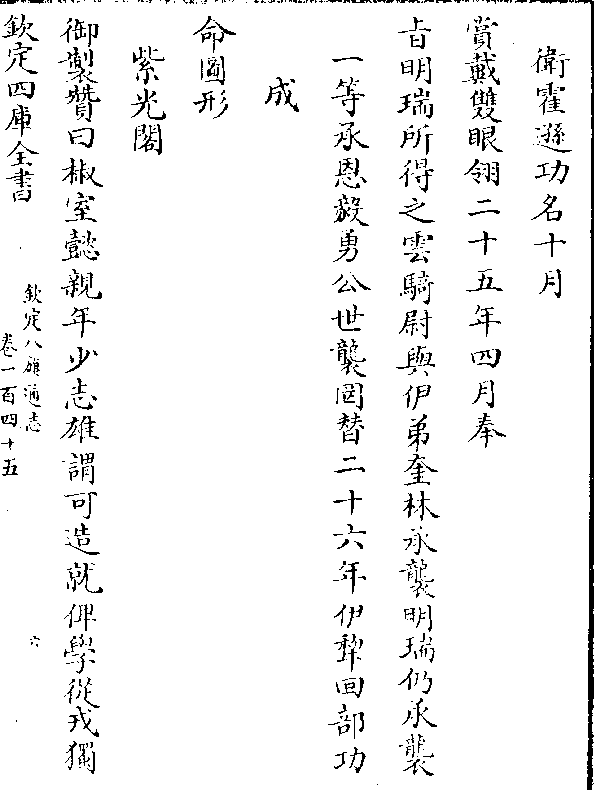 衛霍遜功名十月
賞戴雙眼翎二十五年四月奉
㫖明瑞所得之雲騎尉與伊弟奎林承襲明瑞仍承襲
一等承恩毅勇公世襲罔替二十六年伊犂回部功
成
命圖形
紫光閣
御製贊曰椒室懿親年少志雄謂可造就俾學從戎獨
欽定四庫全書
欽定八旗通志
卷一百四十五
六